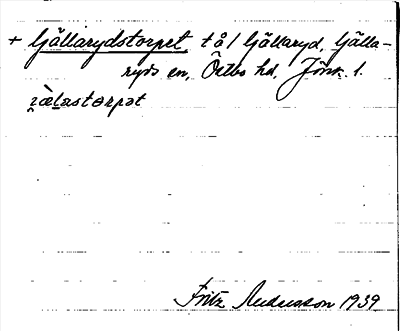 + Gjällarydstorpet t å 1 Gjällaryd, Gjälla-
ryds sn, Östbo hd, Jönk. l.
Fritz Andersson 1939